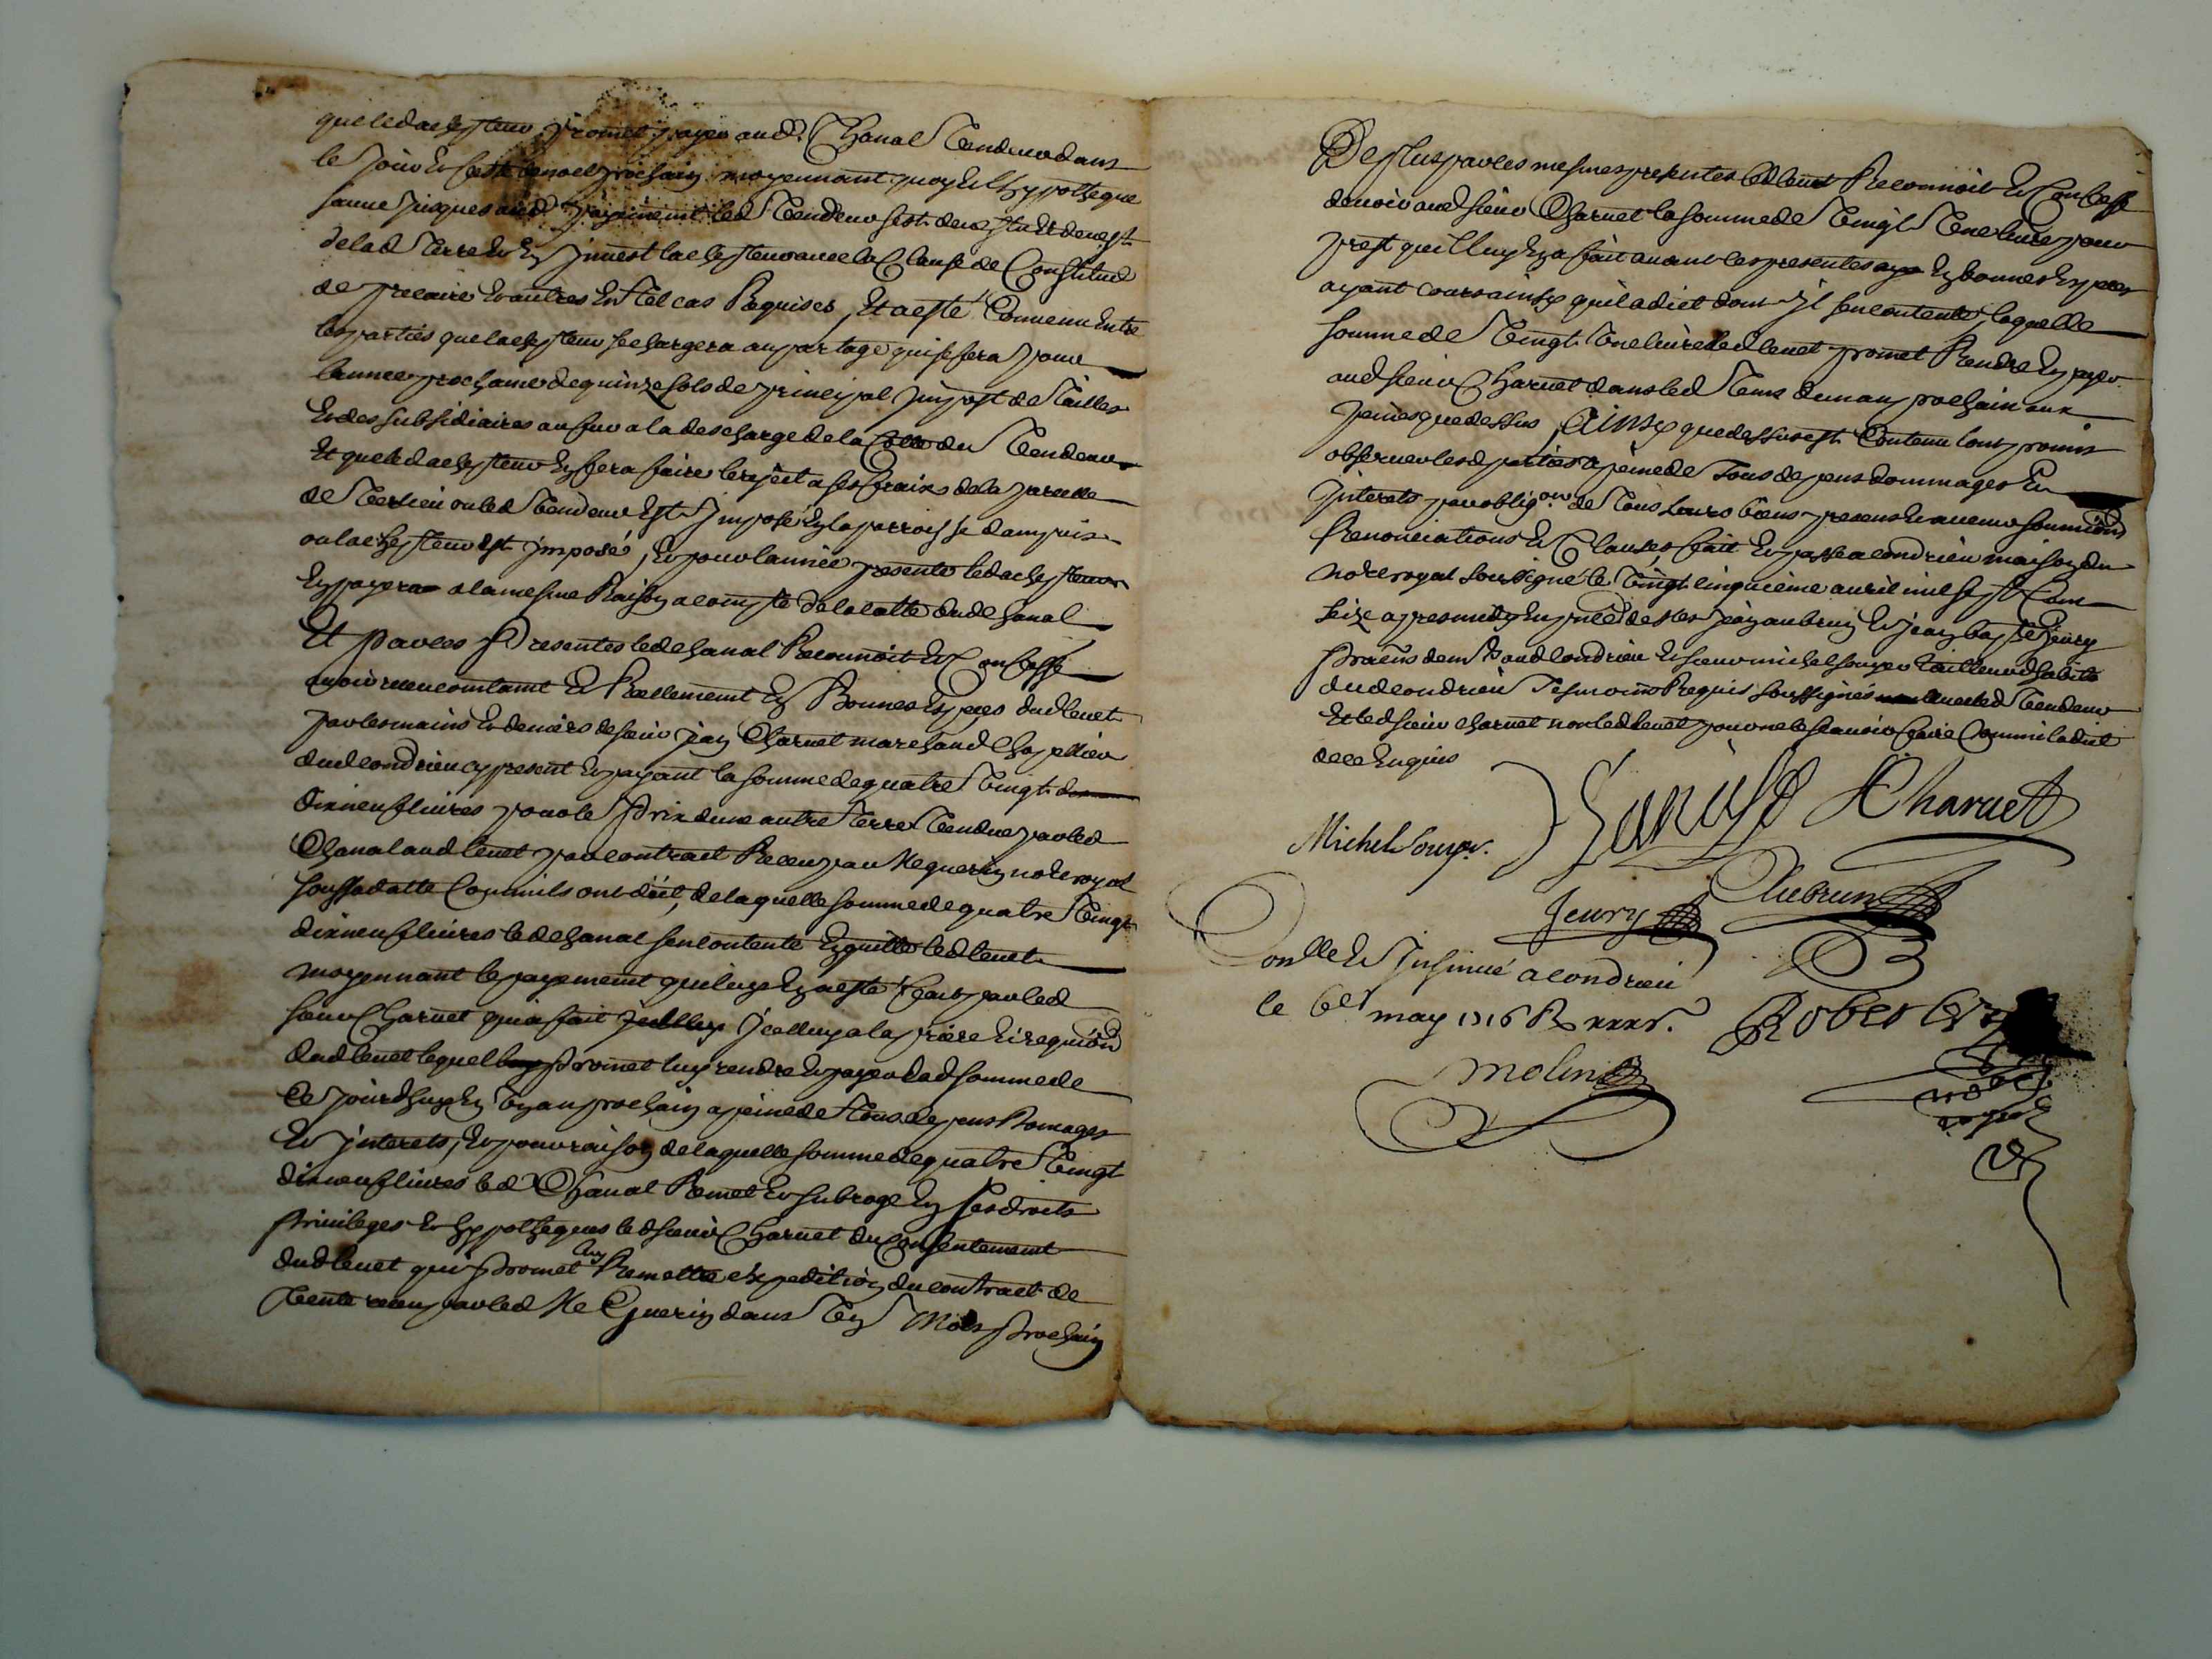 que led achepteur promet payer aud. Chanal Vendeur dans
le jour et feste de noel prochain moyennant quoy et l'hyppotheque
sauve jusques aud. payement led Vendeur sest devestu et devest
de lad Terre et en jnvest lachepteur avec la Clause de Constitud
de precaire et autres en Tel cas Requises, Et a esté Convenu entre
les parties que lachepteur se chargera au partage qui se fera pour
lannee prochaine de quinze sols de principal jmpost de Tailles
et des subsidiaires au fur a la descharge de la Cotte du Vendeur
Et que led achepteur en fera faire le reject a ses fraix de la parcelle
de Verlieu ou led Vendeur Est jmposé en la parroisse dampuis
ou lachepteur est jmposé, et pour lannée presente led achepteur
en payera a la mesme Raison a compte de la cotte dud chanal
Et par les Presentes led chanal Reconnoit et Confesse
avoir receu comtamt et Reellement en Bonnes Especes dud levet
par les mains et deniers de sieur jean Charvet marchand Chapellier
dud condrieu cy present et payant la somme de quatre Vingt
dix neuf livres pour le Prix dune autre Terre Vendue par led
Chanal aud levet par contract Receu par Me guerin nore royal
sous sa datte Comm'ils ont dict, de laquelle somme de quatre Vingt
dix neuf livres led chanal sen contente En quitte led levet
moyennant le payement qui luy en a esté fait par led
sieur Charvet qui a fait jcelluy a la priere et requion
dud levet lequel promet luy rendre et payer lad somme de
Ce jourdhuy en Un an prochain a peine de Tous depens Domages
et jnterets, et pour raison de laquelle somme de quatre Vingt
dix neuf livres led Chanal Remet et subroge en ses droits
Privileges et hyppotheques led sieur Charvet du Consentement
dud levet qui Promet luy Remettre expedition du contract de
Vente receu par led Me Guerin dans Un Mois Prochain
De plus par les mesmes presentes led levet Reconnoit et Confesse
devoir aud sieur Charvet la somme de Vingt Une livre pour
prest quil luy en a fait avant les presentes en bonnes Especes
ayant cours ainsy quil a dict dont jl sen contente, laquelle
somme de Vingt Une livre led levet promet Rendre et payer
aud sieur Charvet dans led Tems dun an prochain aux
peines que dessus, Ainsy que dessus est Contenu lont promis
observer lesd parties a peine de Tous depens dommages et
jnterets par obligon. de Tous leurs biens presens et avenir soumions
Renonciations et Clauses, fait et passé a condrieu maison du
nore royal soussigné le Vingt cinquieme avril mil sept Cens
seize apres midy en pnce de Mes jean aubrun et jean bapte jeury
Praciens demts aud Condrieu et sieur michel souper Tailleur dhabits
dud condrieu Tesmoins Requis soussignés avec led Vendeur
et led sieur Charvet non led levet pour ne le scavoir faire Comm'il a dict
de ce enquis
Michel souper. JChanald JCharvet
Jeury Aubrun
Conllé et Jnsinué a condrieu
le 6er may 1716 R xxxs. Robert
molin nore
royal